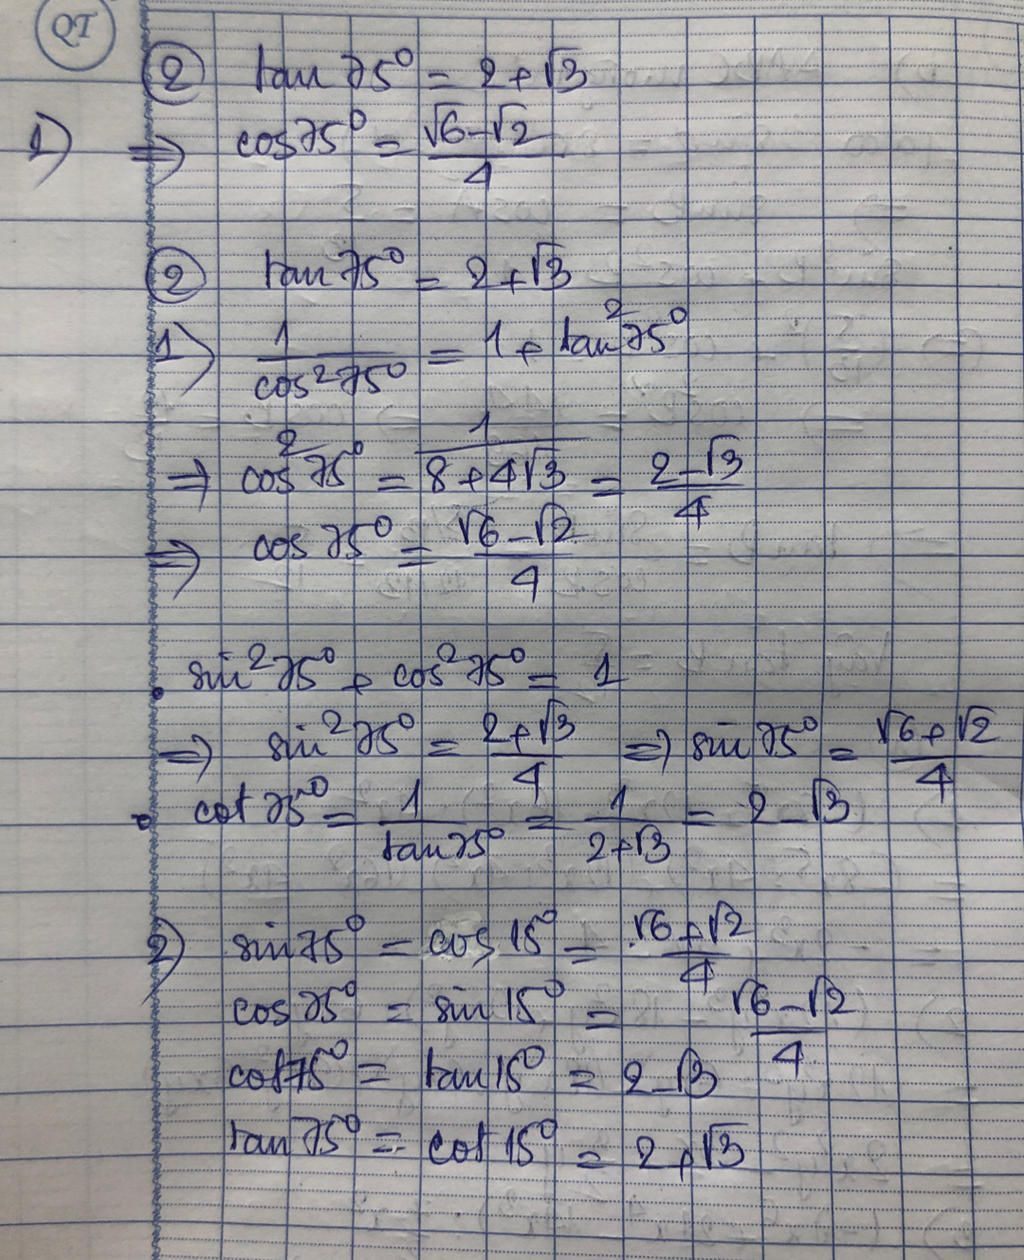 QT
② tan 75° = 2+√3
1) ⇒ cos75° = (√6-√2)/4
② tan 75° = 2+√3
1) 1/cos²75° = 1 + tan²75°
⇒ cos²75° = 1/(8+4√3) = (2-√3)/4
⇒ cos 75° = (√6-√2)/4
• sin²75° + cos²75° = 1
⇒ sin²75° = (2+√3)/4 ⇒ sin 75° = (√6+√2)/4
• cot 75° = 1/tan75° = 1/(2+√3) = 2-√3
2) sin75° = cos 15° = (√6+√2)/4
cos 75° = sin 15° = (√6-√2)/4
cot75° = tan15° = 2-√3
tan 75° = cot 15° = 2+√3